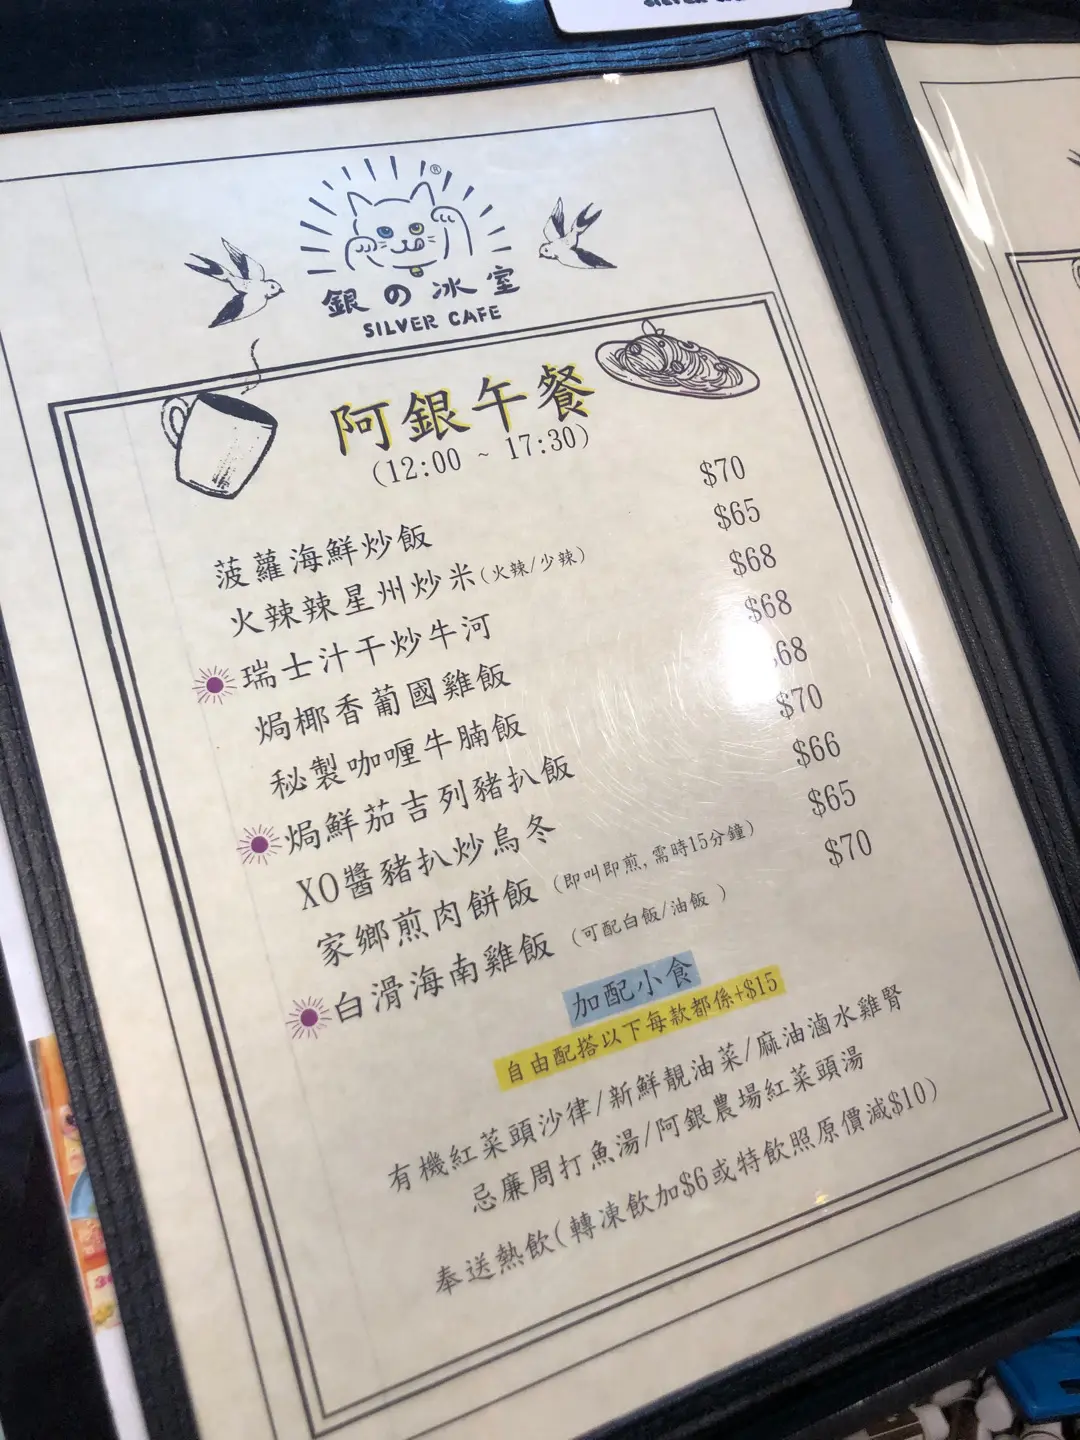 ®
銀の冰室
SILVER CAFE
阿銀午餐
(12:00 ~ 17:30)
菠蘿海鮮炒飯 $70
火辣辣星州炒米(火辣/少辣) $65
瑞士汁干炒牛河 $68
焗椰香葡國雞飯 $68
秘製咖喱牛腩飯 68
焗鮮茄吉列豬扒飯 $70
XO醬豬扒炒烏冬 $66
家鄉煎肉餅飯 (即叫即煎,需時15分鐘) $65
白滑海南雞飯 (可配白飯/油飯) $70
加配小食
自由配搭以下每款都係+$15
有機紅菜頭沙律/新鮮靚油菜/麻油滷水雞腎
忌廉周打魚湯/阿銀農場紅菜頭湯
奉送熱飲(轉凍飲加$6或特飲照原價減$10)